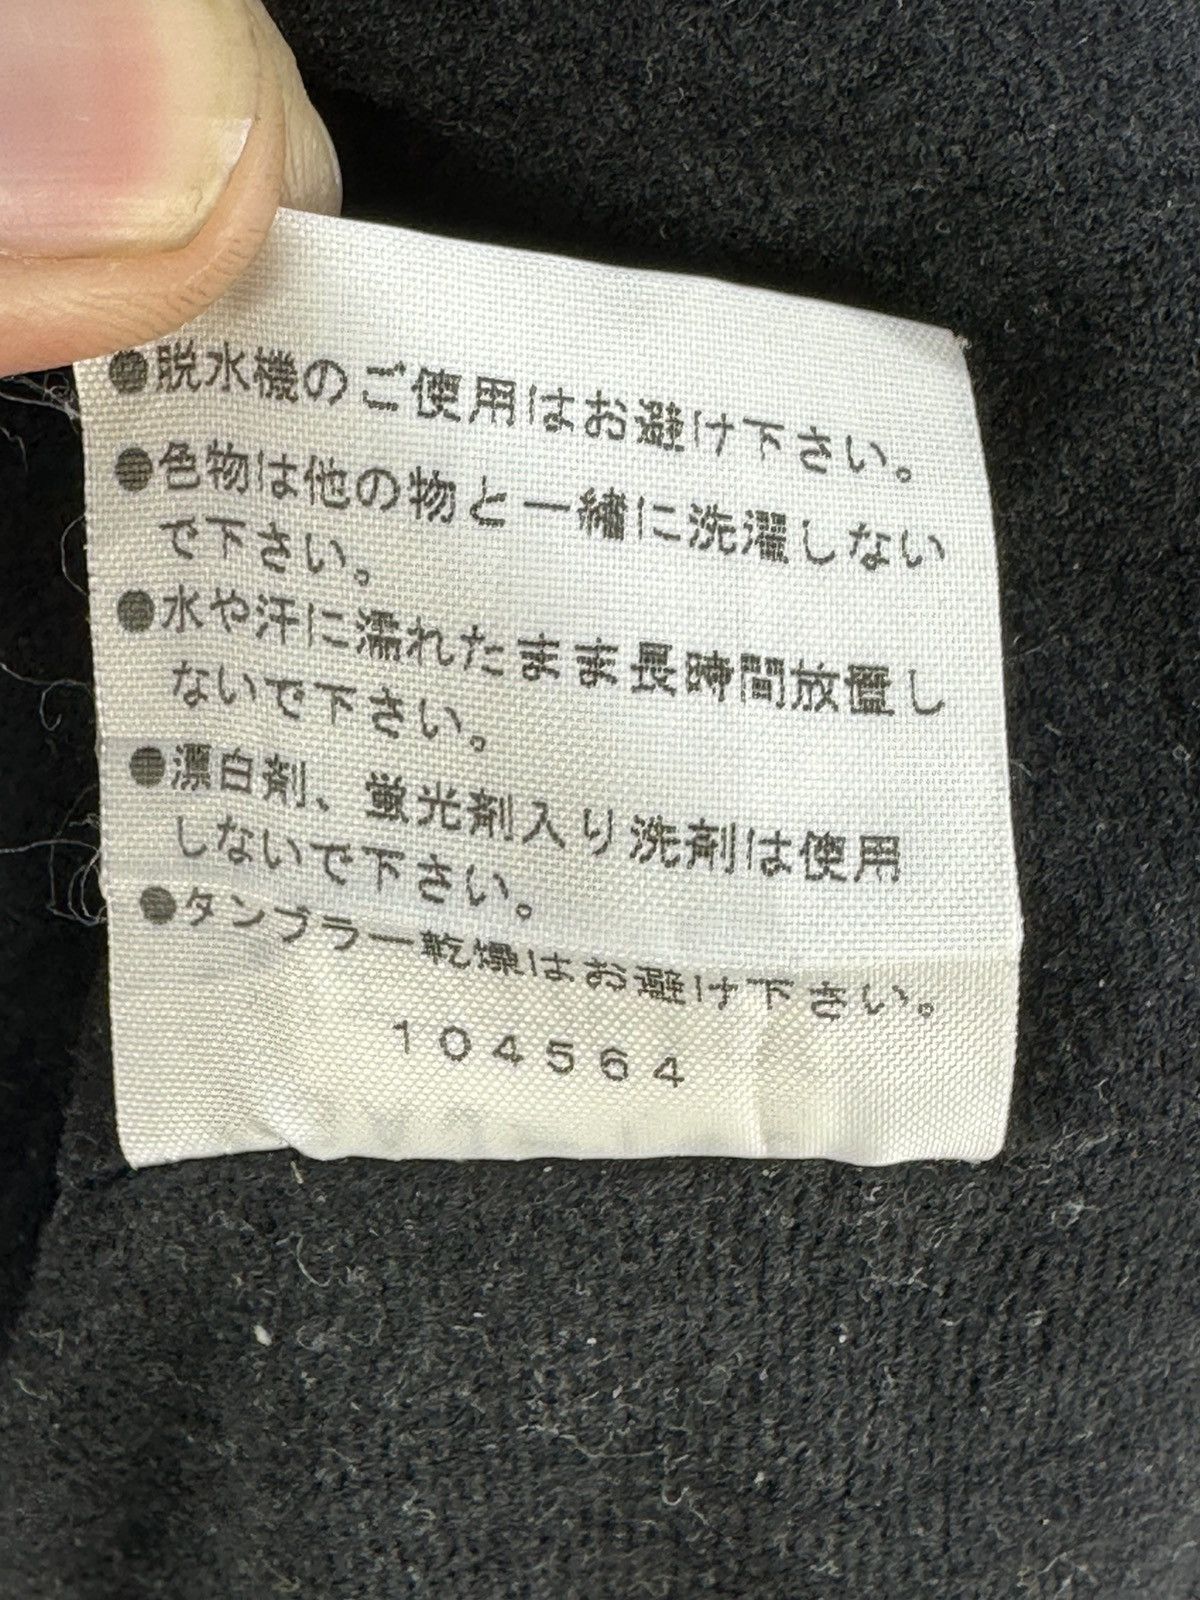 ●脱水機のご使用はお避け下さい。
●色物は他の物と一緒に洗濯しない
で下さい。
●水や汗に濡れたまま長時間放置し
ないで下さい。
●漂白剤、蛍光剤入り洗剤は使用
しないで下さい。
●タンブラー乾燥はお避け下さい。
104564